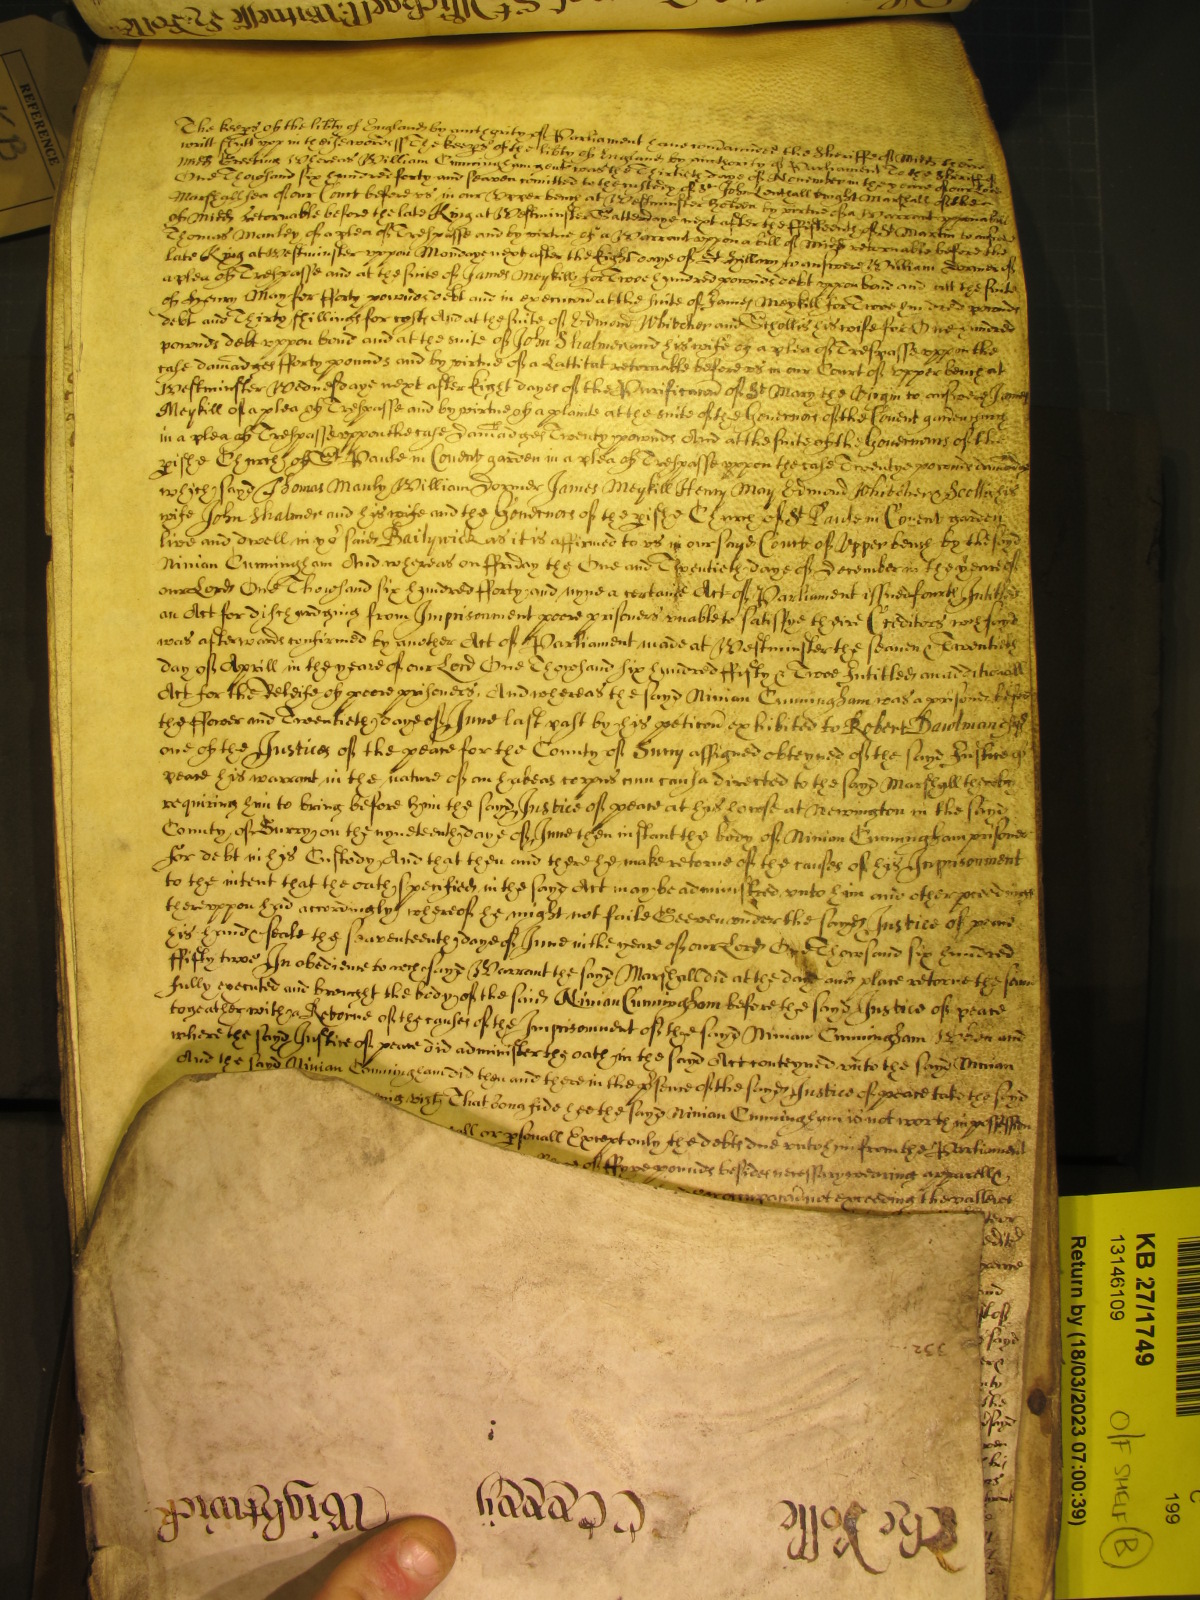 St Michaell Witnesse H: Rolle
REFERENCE
The keeps of the lib'ty of England by authority of Parliament have commanded the Sheriffe of Midds theire
writt full upp in these words ss The keeps of the lib'ty of England by authority of Parliament To the Sheriff of
Midds Greeting Whereas William Cunningham gent was the Thirtieth daye of November in the yeare of our Lord
One Thowsand six hundred forty and seaven comitted to the custody of Sr John Lenthall knight Marshall of the
Marshallsea of our Court before us in our Upper bench at Westminster by virtue of a Warrant uppon a bill
of Midds retornable before the late King at Westminster Satterdaye next after the fifteenth of St Martin to answer
Thomas Manley of a plea of Trespasse and by virtue of a Warrant uppon a bill of Midds retornable before the
late King at Westminster uppon Mondaye next after the Eight daye of St Hillary to answere William Dormer of
a plea of Trespasse and at the suite of James Meykill for Twoe hundred pounds debt uppon bond and att the suite
of Henry May for fforty pounds debt and in execucon at the suite of James Meykill for Twoe hundred pounds
debt and Thirty shillings for costs And at the suite of Edmond Whitchey and Schollis his wife for One hundred
pounds debt uppon bond and at the suite of John Shalmer and his wife of a plea of Trespasse uppon the
case damadges fforty pounds and by virtue of a Lattitat retornable before us in our Court of Upper bench at
Westminster Wednesdaye next after Eight dayes of the Purificacon of St Mary the Virgin to answere James
Meykill of a plea of Trespasse and by virtue of a plainte at the suite of the Governors of the Covent garden
in a plea of Trespasse uppon the case Damadges Twenty pounds And at the suite of the Governors of the
pishe Church of St Paule in Covent garden in a plea of Trespasse uppon the case Twentye pounds damadges
which sayd Thomas Manly William Dormer James Meykill Henry May Edmond Whitcher & Scollis his
wife John Shalmer and his wife and the Governors of the pishe Church of St Paule in Covent garden
live and dwell in yor said Bailywick as it is affirmed to us in our sayd Court of Upper bench by the sayd
Ninian Cunningham And whereas on ffriday the One and Twentieth daye of December in the yeare of
our Lord One Thowsand six hundred fforty and nyne a certaine Act of Parliament issued fourth Intitled
an Act for discharging from Imprisonment poore prisoners unable to satisfye theire Creditors wch sayd
was afterwards confirmed by another Act of Parliament made at Westminster the seaven & Twentieth
day of Aprill in the yeare of our Lord One Thowsand six hundred ffifty & Twoe Intitled an additionall
Act for the Releife of poore prisoners. And whereas the sayd Ninian Cunningham was a prisoner before
the ffower and Twentieth daye of June last past by his peticon exhibited to Robert
one of the Justices of the peace for the County of Surry assigned obteyned of the sayd Justice of
peace his warrant in the nature of an habeas corpus cum causa directed to the sayd Marshall thereby
requiring him to bring before him the sayd Justice of peace at his howse at Newington in the sayd
County of Surry on the nyneteenth daye of June then instant the body of Ninian Cunningham prisoner
for debt in his Custody And that then and there he make retorne of the causes of his Imprisonment
to the intent that the oath specified in the sayd Act may be administred unto him and other proceedings
thereuppon had accordingly whereof he might not faile Geeven under the sayd Justice of peace
his hand & seale the seaventeenth daye of June in the yeare of our Lord One Thowsand six hundred
ffifty twoe In obedience to wch sayd Warrant the sayd Marshall did at the day and place retorne the same
fully executed and brought the body of the said Ninian Cunningham before the sayd Justice of peace
togeather with a Retorne of the causes of the Imprisonment of the sayd Ninian Cunningham When and
where the sayd Justice of peace did administer the oath in the sayd Act conteyned unto the sayd Ninian
And the sayd Ninian Cunningham did then and there in the psence of the sayd Justice of peace take the sayd
vizt That bona fide hee the sayd Ninian Cunningham is not worth in possession
all or psonall Except only the debts due unto him from the Parliament
of ffyve pounds besides necessary wearing apparell &
not exceeding the valleue
332
The Rolle
Wightwick
KB 27/1749
13146109
Return by (18/03/2023 07:00:39)
O/F SHELF B
C
199